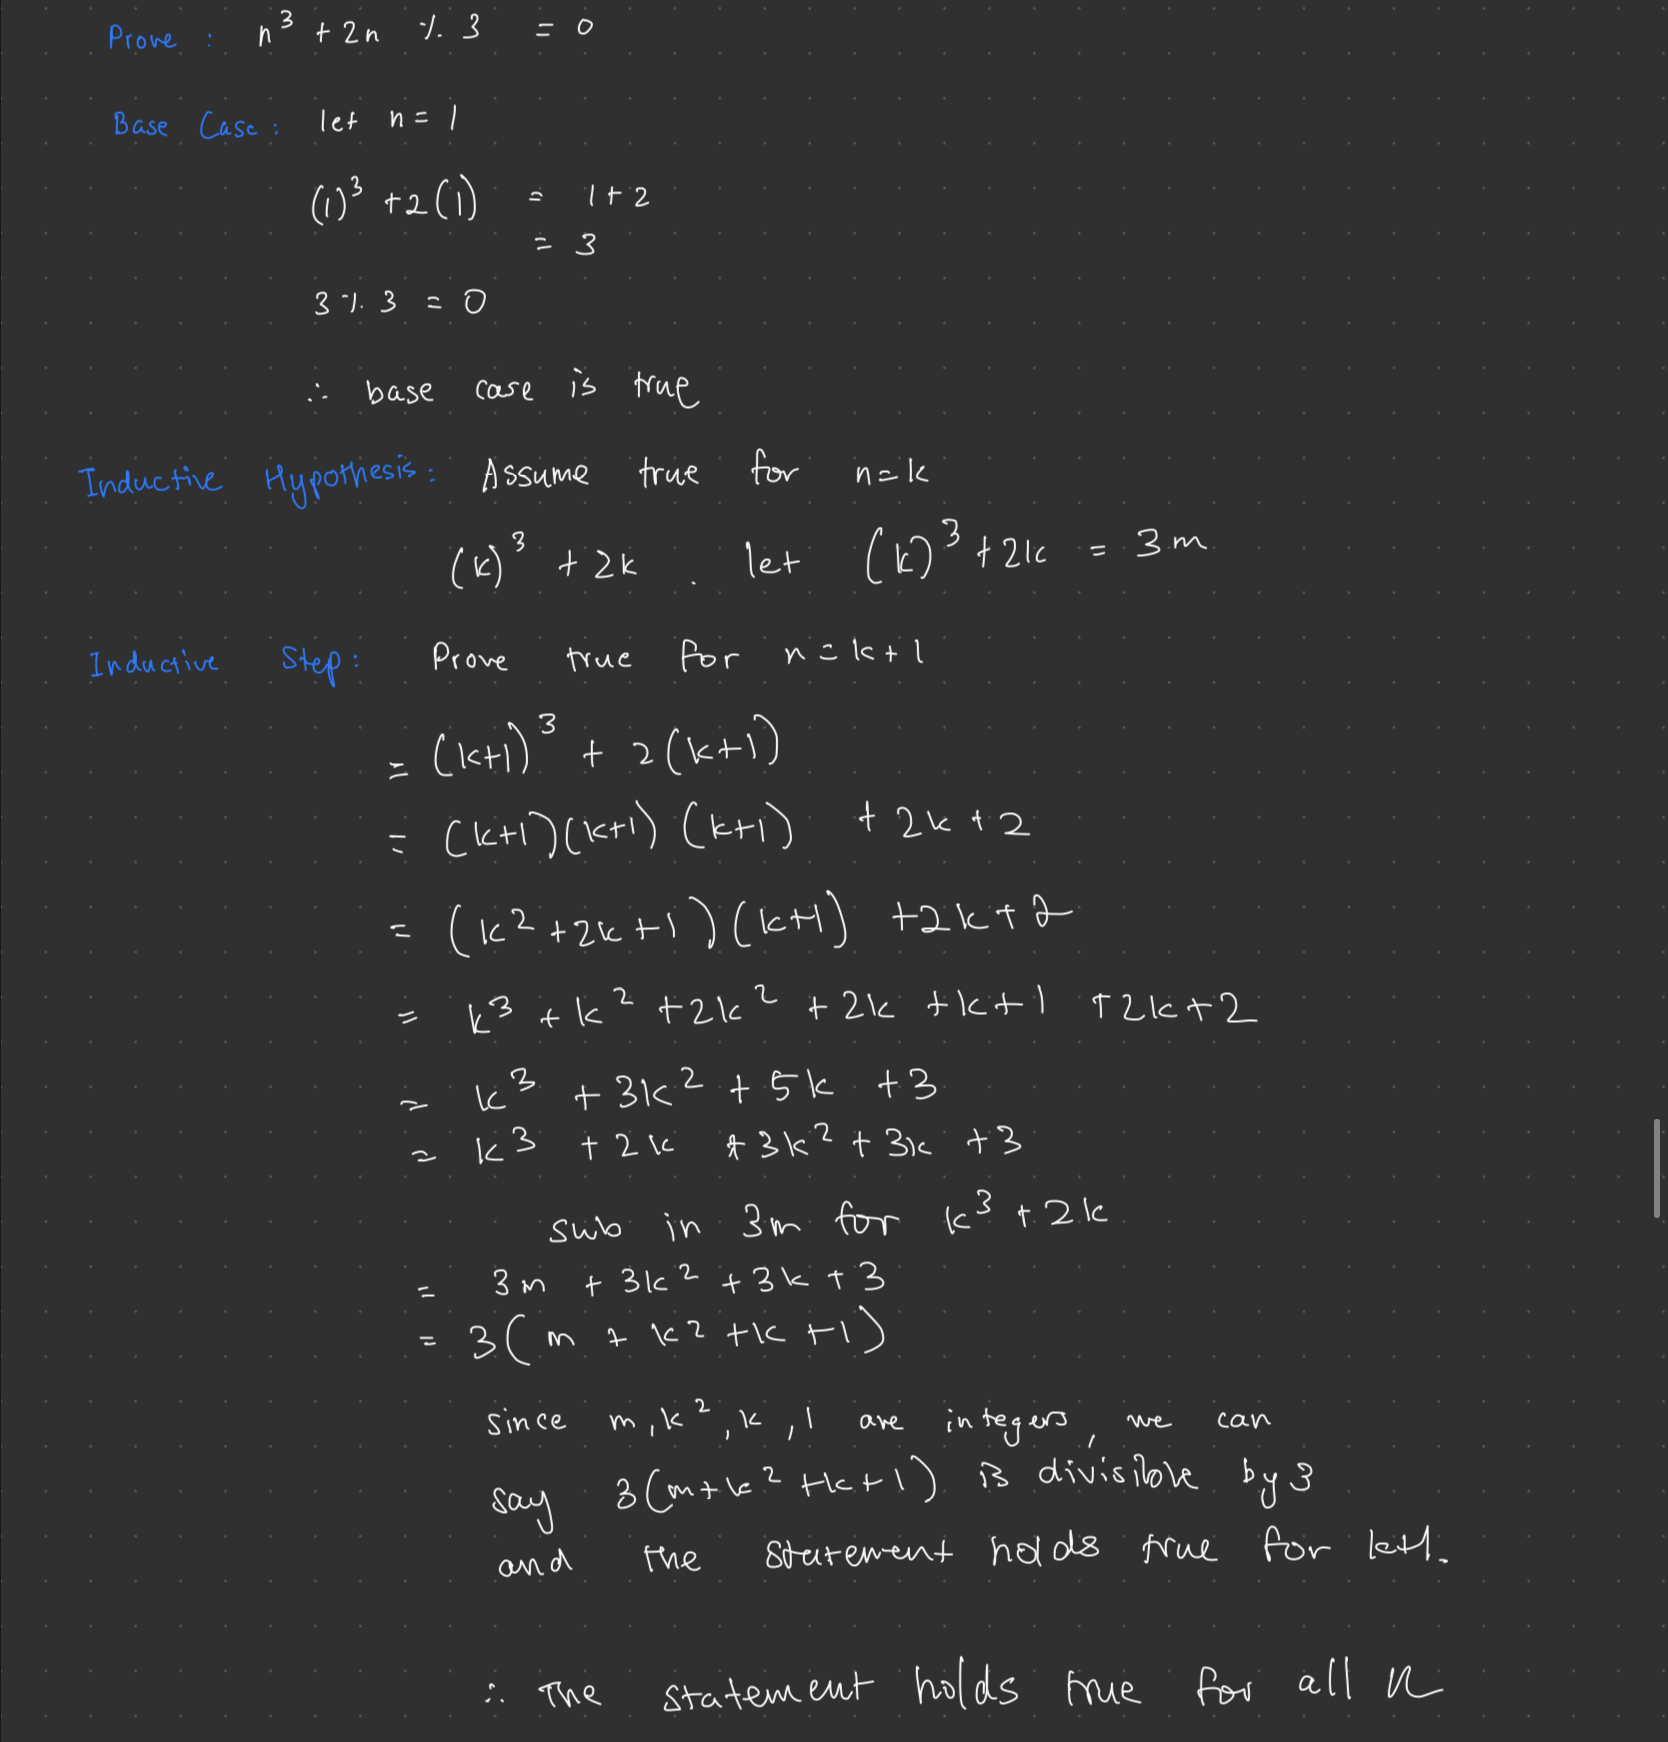 Prove : n³ + 2n % 3 = 0
Base Case : let n = 1
(1)³ + 2(1) = 1 + 2
= 3
3 % 3 = 0
∴ base case is true
Inductive Hypothesis : Assume true for n = k
(k)³ + 2k . let (k)³ + 2k = 3m
Inductive Step : Prove true for n = k + 1
= (k+1)³ + 2(k+1)
= (k+1)(k+1)(k+1) + 2k + 2
= (k² + 2k + 1)(k+1) + 2k + 2
= k³ + k² + 2k² + 2k + k + 1 + 2k + 2
= k³ + 3k² + 5k + 3
= k³ + 2k + 3k² + 3k + 3
sub in 3m for k³ + 2k
= 3m + 3k² + 3k + 3
= 3(m + k² + k + 1)
since m, k², k, 1 are integers, we can
say 3(m + k² + k + 1) is divisible by 3
and the statement holds true for k+1.
∴ The statement holds true for all n